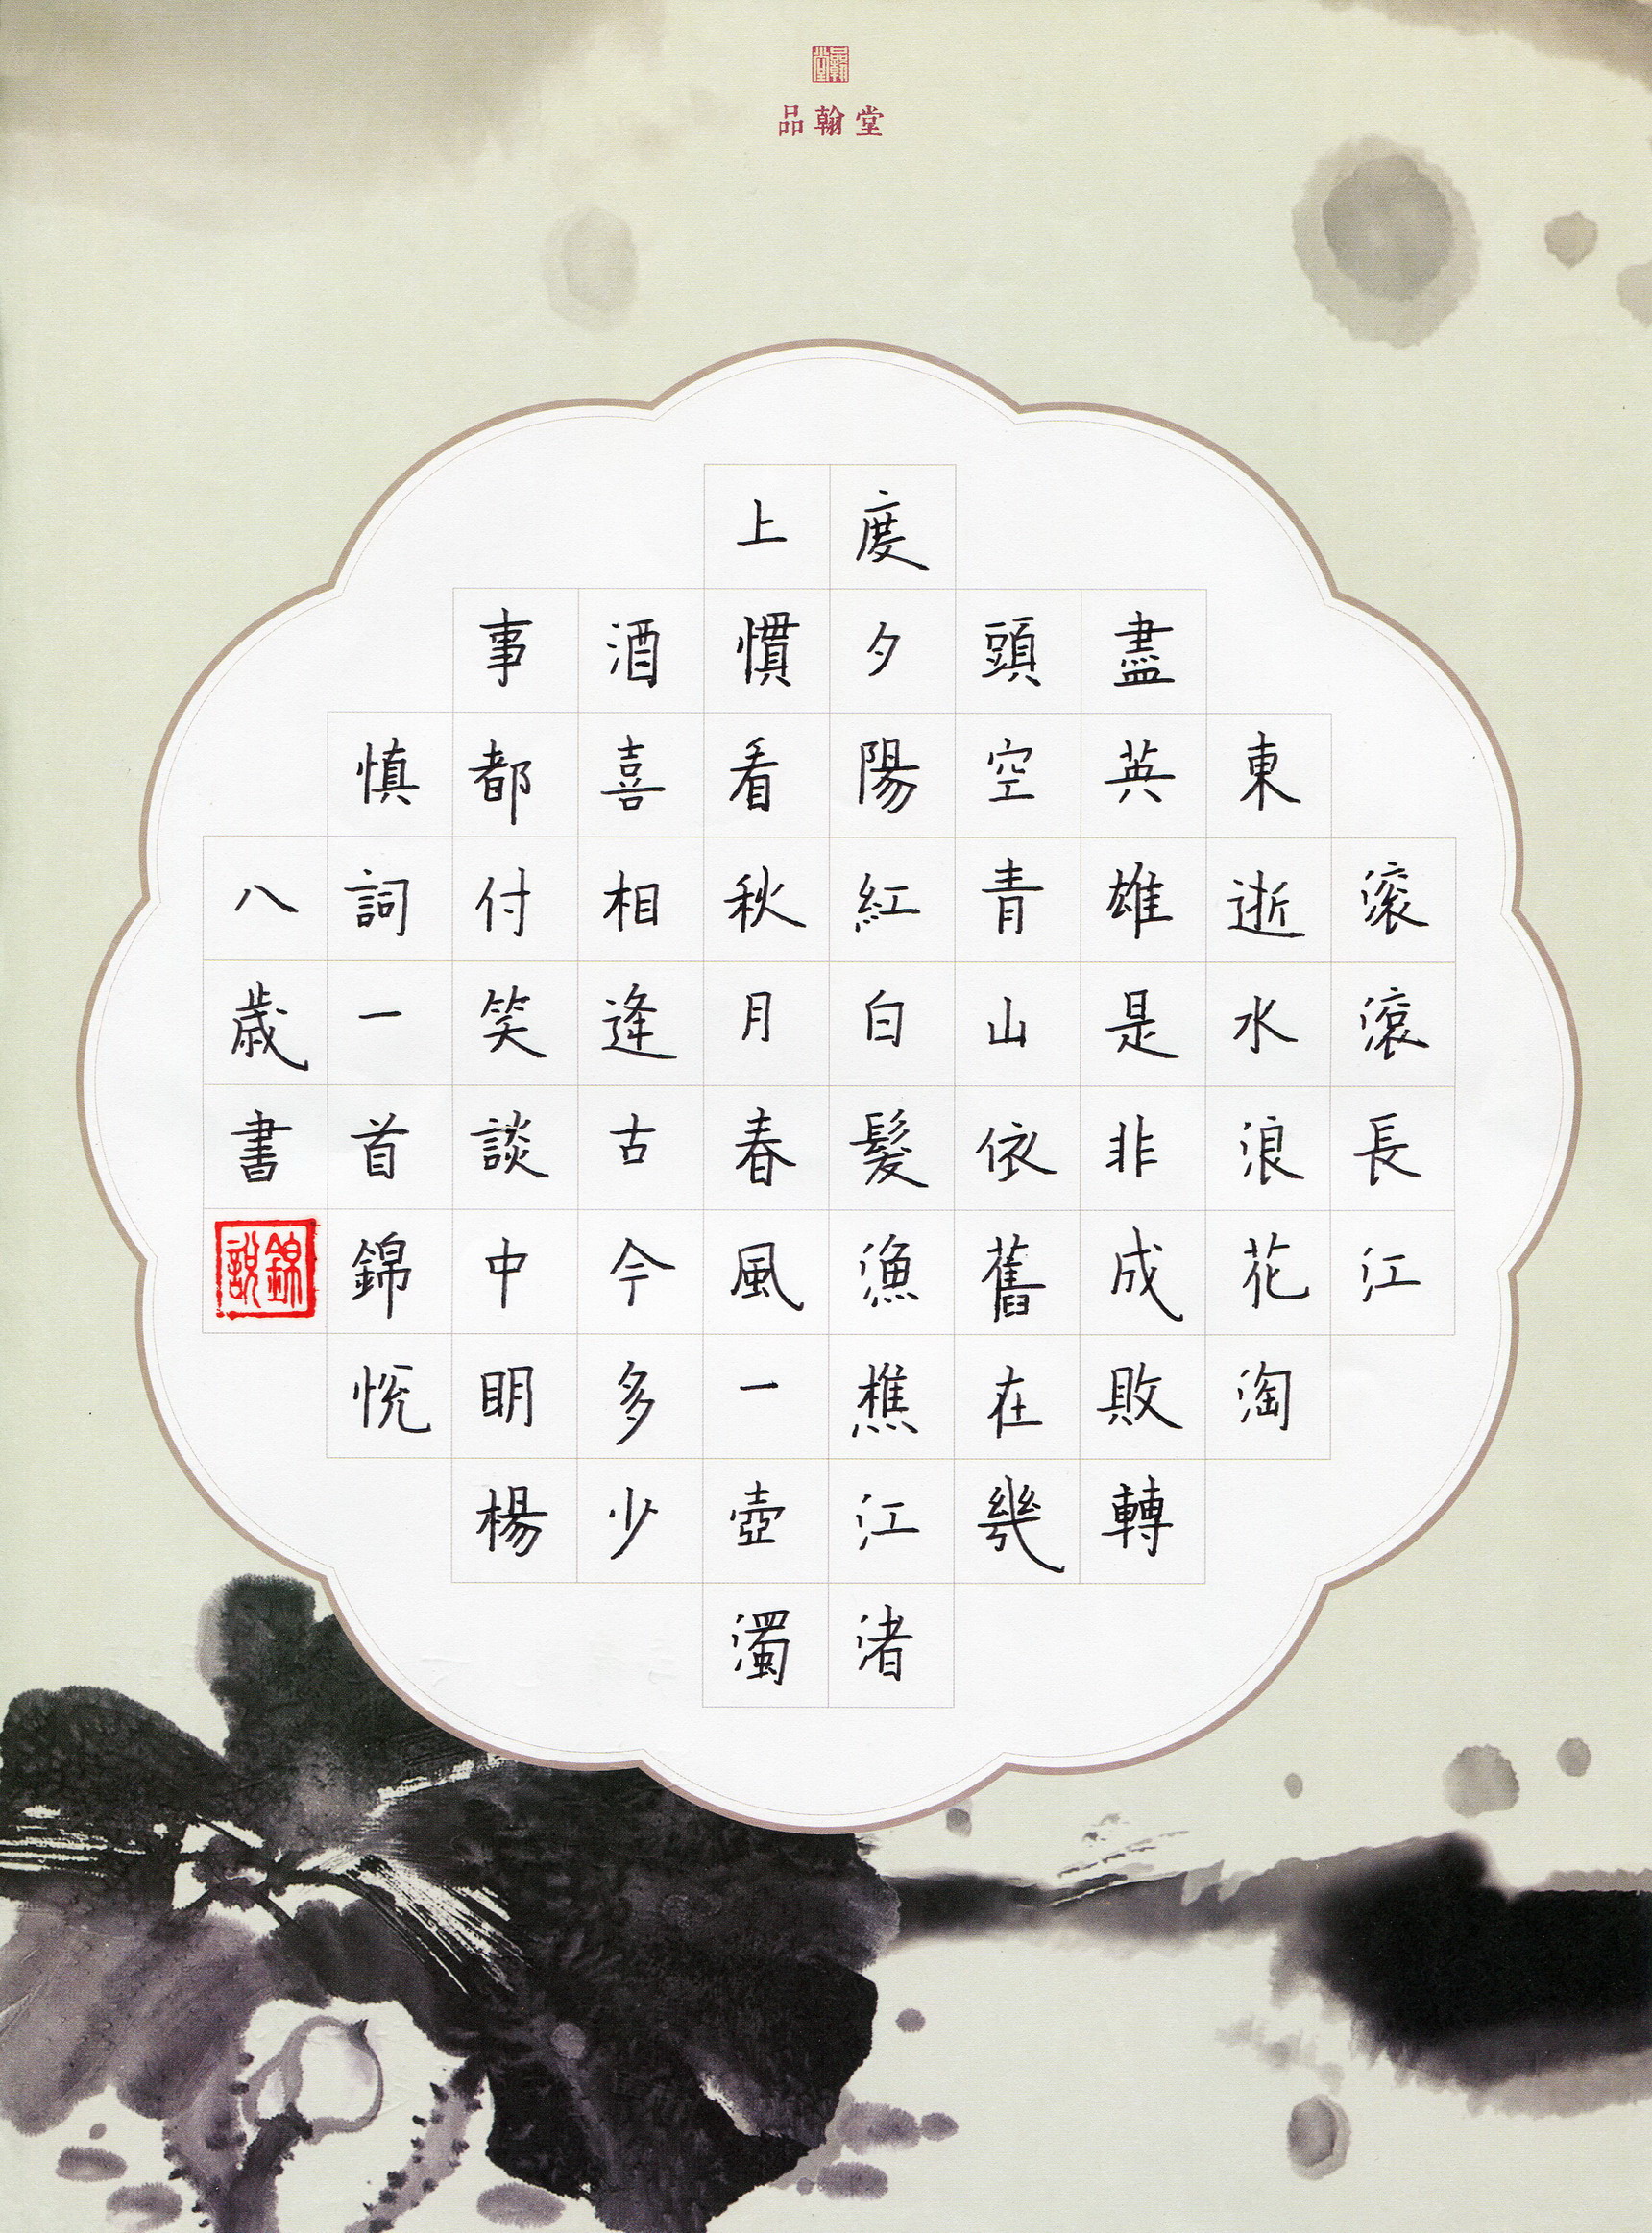 品翰堂
滚滾長江
東逝水浪花淘
盡英雄是非成敗轉
頭空青山依舊在幾
度夕陽紅白髮漁樵江渚
上慣看秋月春風一壺濁
酒喜相逢古今多少
事都付笑談中明楊
慎詞一首錦悅
八歲書
錦說